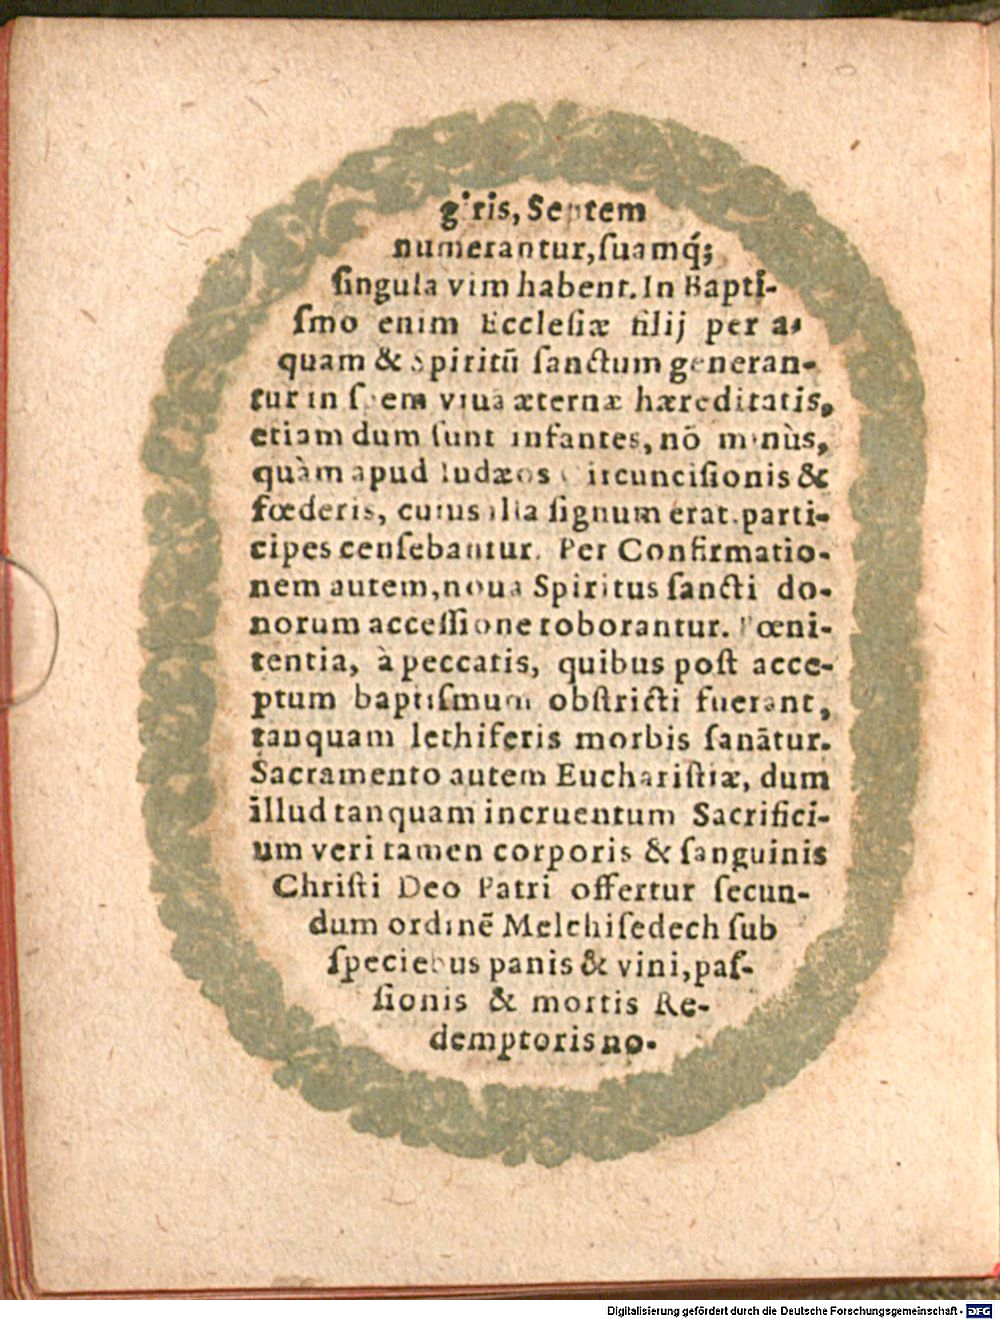 giris, Septem
numerantur, suamq́;
singula vim habent. In Bapti-
smo enim Ecclesiæ filij per a-
quam & Spiritū sanctum generan-
tur in spem vitæ æternæ hæreditatis,
etiam dum sunt infantes, nō minùs,
quàm apud Iudæos Circuncisionis &
fœderis, cuius illa signum erat. parti-
cipes censebantur. Per Confirmatio-
nem autem, noua Spiritus sancti do-
norum accessione roborantur. Pœni-
tentia, à peccatis, quibus post acce-
ptum baptismum obstricti fuerant,
tanquam lethiferis morbis sanātur.
Sacramento autem Eucharistiæ, dum
illud tanquam incruentum Sacrifici-
um veri tamen corporis & sanguinis
Christi Deo Patri offertur secun-
dum ordinē Melchisedech sub
speciebus panis & vini, pas-
sionis & mortis Re-
demptoris no-
Digitalisierung gefördert durch die Deutsche Forschungsgemeinschaft - DFG